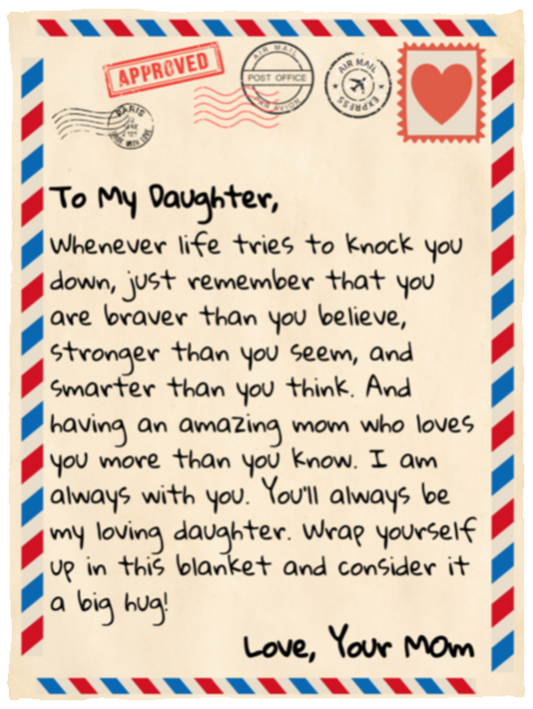 APPROVED
AIR MAIL
POST OFFICE
PAR AVION
AIR MAIL
EXPRESS
PARIS
To My Daughter,
Whenever life tries to knock you
down, just remember that you
are braver than you believe,
stronger than you seem, and
smarter than you think. And
having an amazing mom who loves
you more than you know. I am
always with you. You'll always be
my loving daughter. Wrap yourself
up in this blanket and consider it
a big hug!
Love, Your Mom